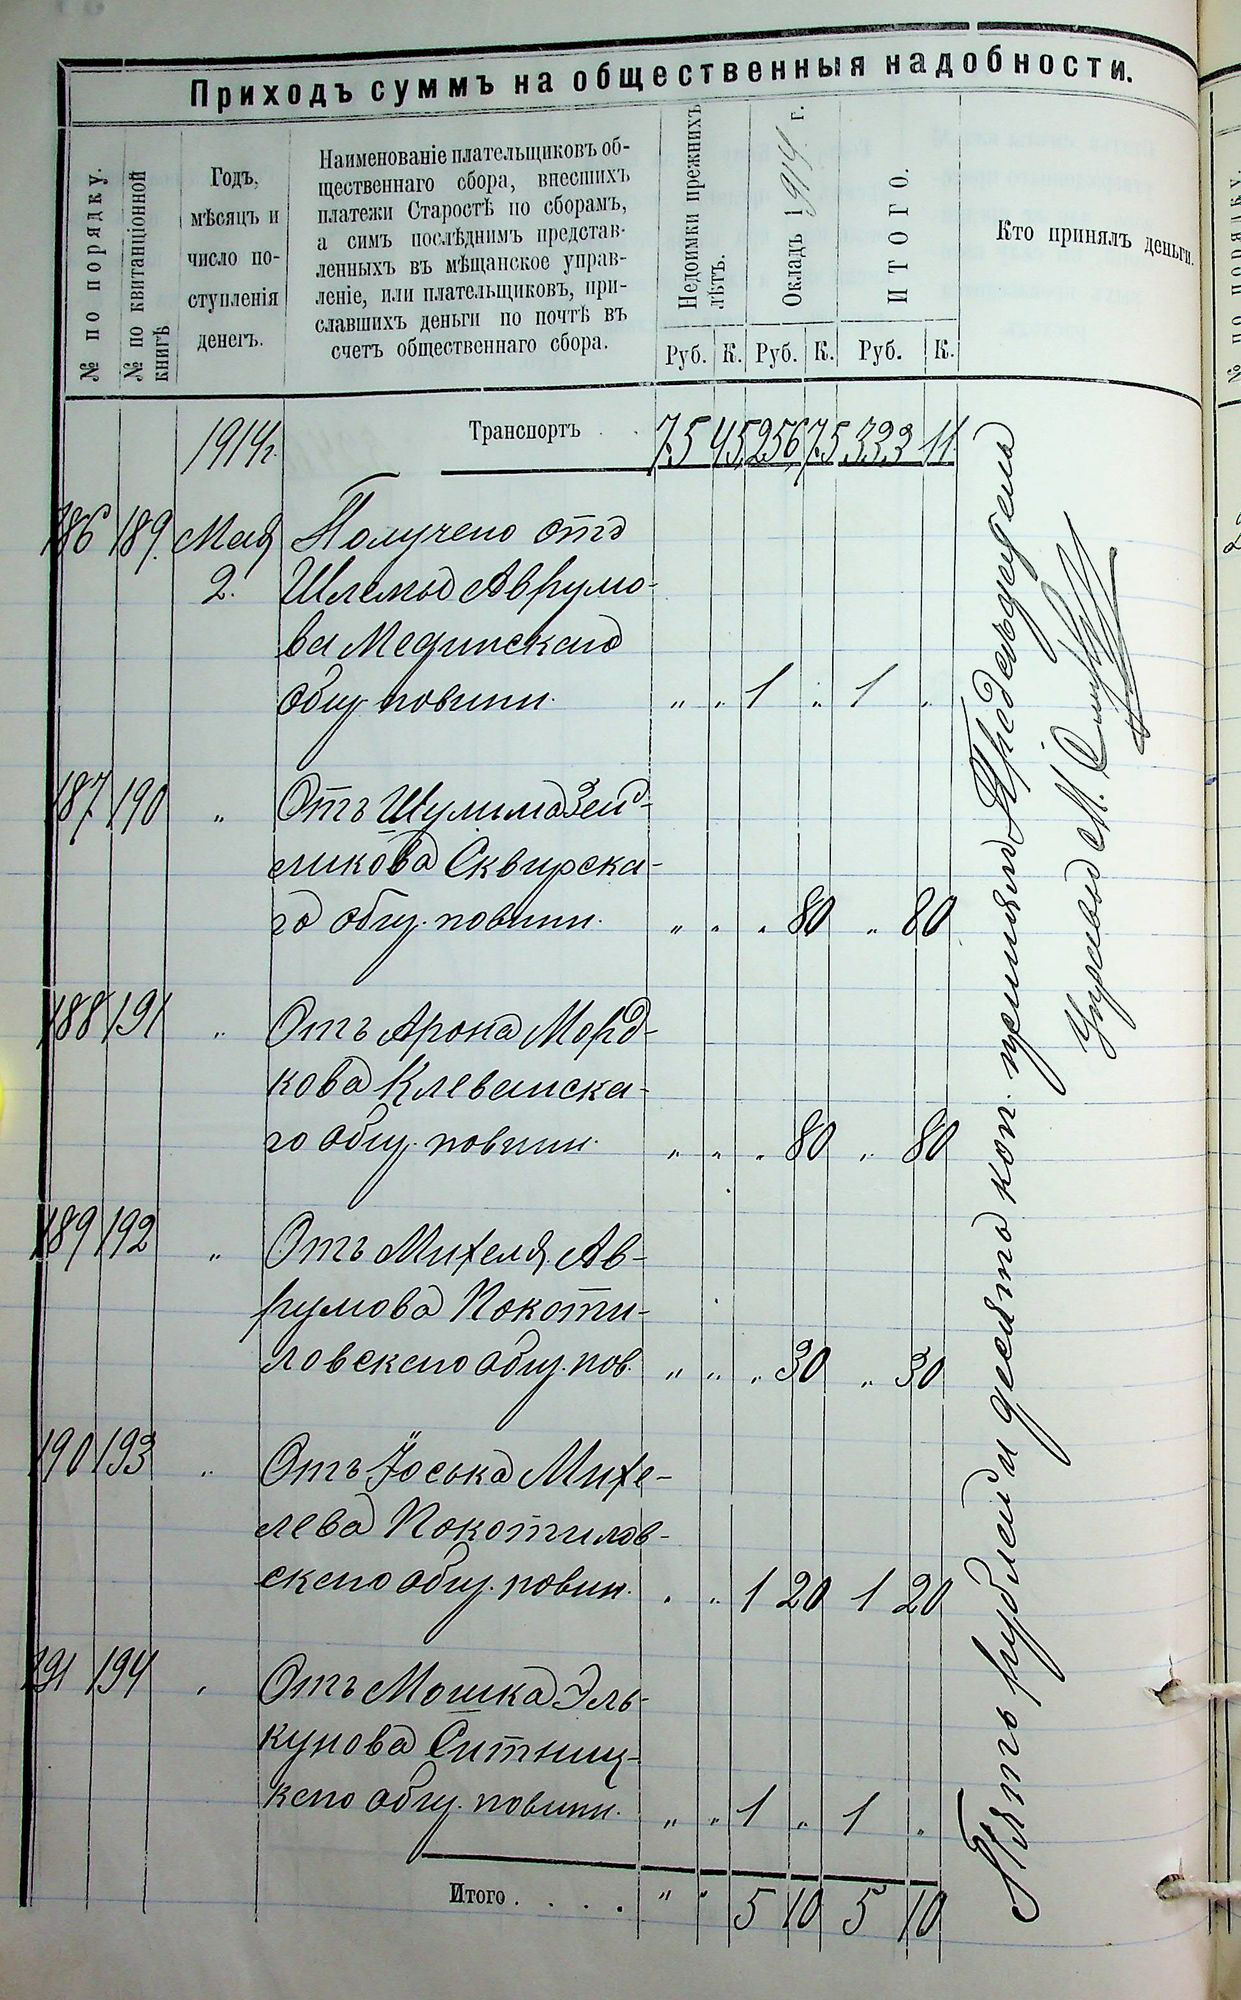 Приходъ суммъ на общественныя надобности.
№ по порядку.
№ по квитанціонной
книгѣ
Годъ,
мѣсяцъ и
число по-
ступленія
денегъ.
Наименованіе плательщиковъ об-
щественнаго сбора, внесшихъ
платежи Старостѣ по сборамъ,
а симъ послѣднимъ представ-
ленныхъ въ мѣщанское управ-
леніе, или плательщиковъ, при-
славшихъ деньги по почтѣ въ
счетъ общественнаго сбора.
Недоимки прежнихъ
лѣтъ.
Окладъ 1914 г.
ИТОГО.
Кто принялъ деньги.
Руб. К. Руб. К. Руб. К.
1914г. Транспортъ . . 75 45 256 75 333 11
186 189. Мая Получено отъ
2. Шлемы Аврумо-
ва Мединскаго
общ. повинн. " " 1 " 1 "
187 190 " Отъ Шулима Зей-
ликова Сквирска-
го общ. повинн. " " " 80 " 80
188 191 " Отъ Арона Морд-
кова Клеванска-
го общ. повинн. " " " 80 " 80
189 192 " Отъ Михеля Ав-
румова Покоти-
ловскаго общ. пов. " " " 30 " 30
190 193 " Отъ Йоська Михе-
лева Покотилов-
скаго общ. повин. " " 1 20 1 20
191 194 " Отъ Мошка Эль-
кунова Ситниц-
каго общ. повинн. " " 1 " 1 "
Итого . . . . " " 5 10 5 10
Пять рублей и десять коп. принялъ Предсѣдатель
Управы М.